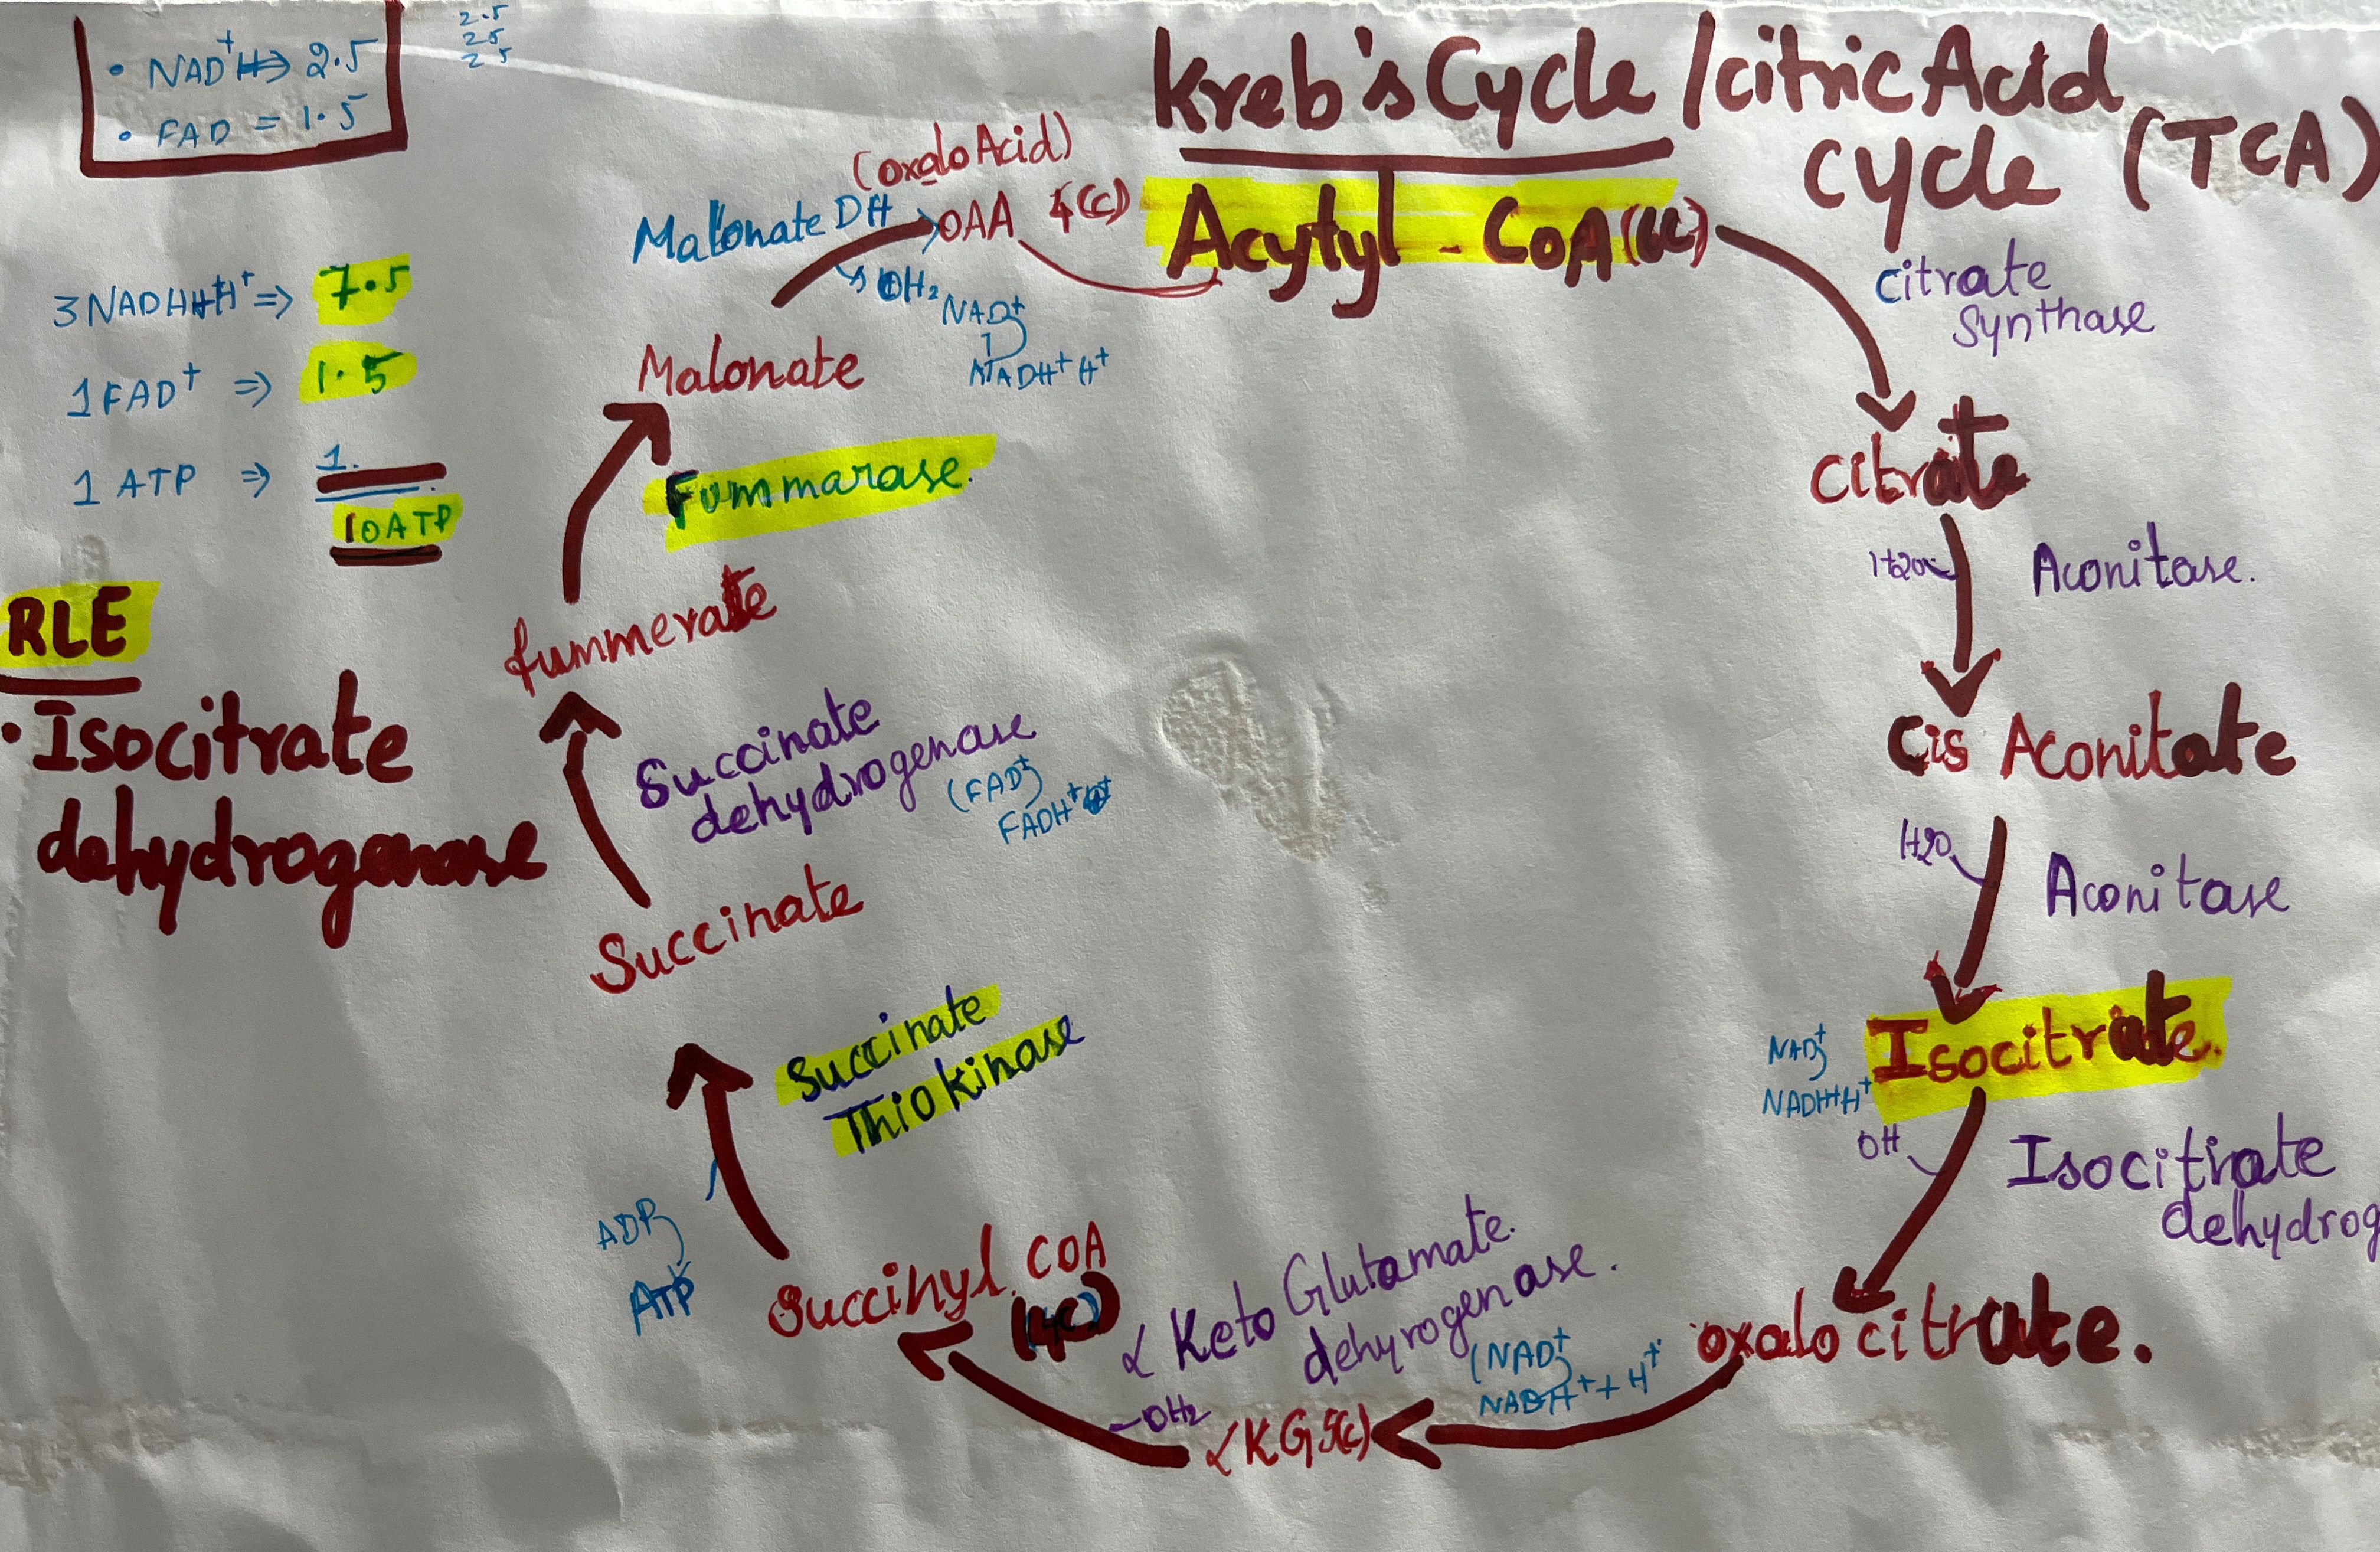 • NAD⁺H ⇒ 2.5
• FAD = 1.5
2.5
2.5
2.5
Kreb's Cycle / citric Acid
cycle (TCA)
Acytyl - CoA
(oxalo Acid)
Malonate DH
OAA 4(c)
OH₂
NAD⁺
NADH⁺ H⁺
citrate
synthase
3NADH+H⁺ ⇒ 7.5
1FAD⁺ ⇒ 1.5
1 ATP ⇒ 1.
10ATP
Malonate
Fummarase.
Citrate
H2O
Aconitase.
RLE
• Isocitrate
dehydrogenase
fummerate
Succinate
dehydrogenase
(FAD⁺
FADH⁺
Cis Aconitate
H2O
Aconitase
Succinate
Succinate
Thiokinase
NAD⁺
NADH+H⁺
Isocitrate.
OH
Isocitrate
dehydrog
ADP
ATP
Succinyl COA
(4C)
α Keto Glutamate.
dehyrogenase.
(NAD⁺
NADH⁺ + H⁺
oxalo citrate.
-OH₂
αKG 5(c)